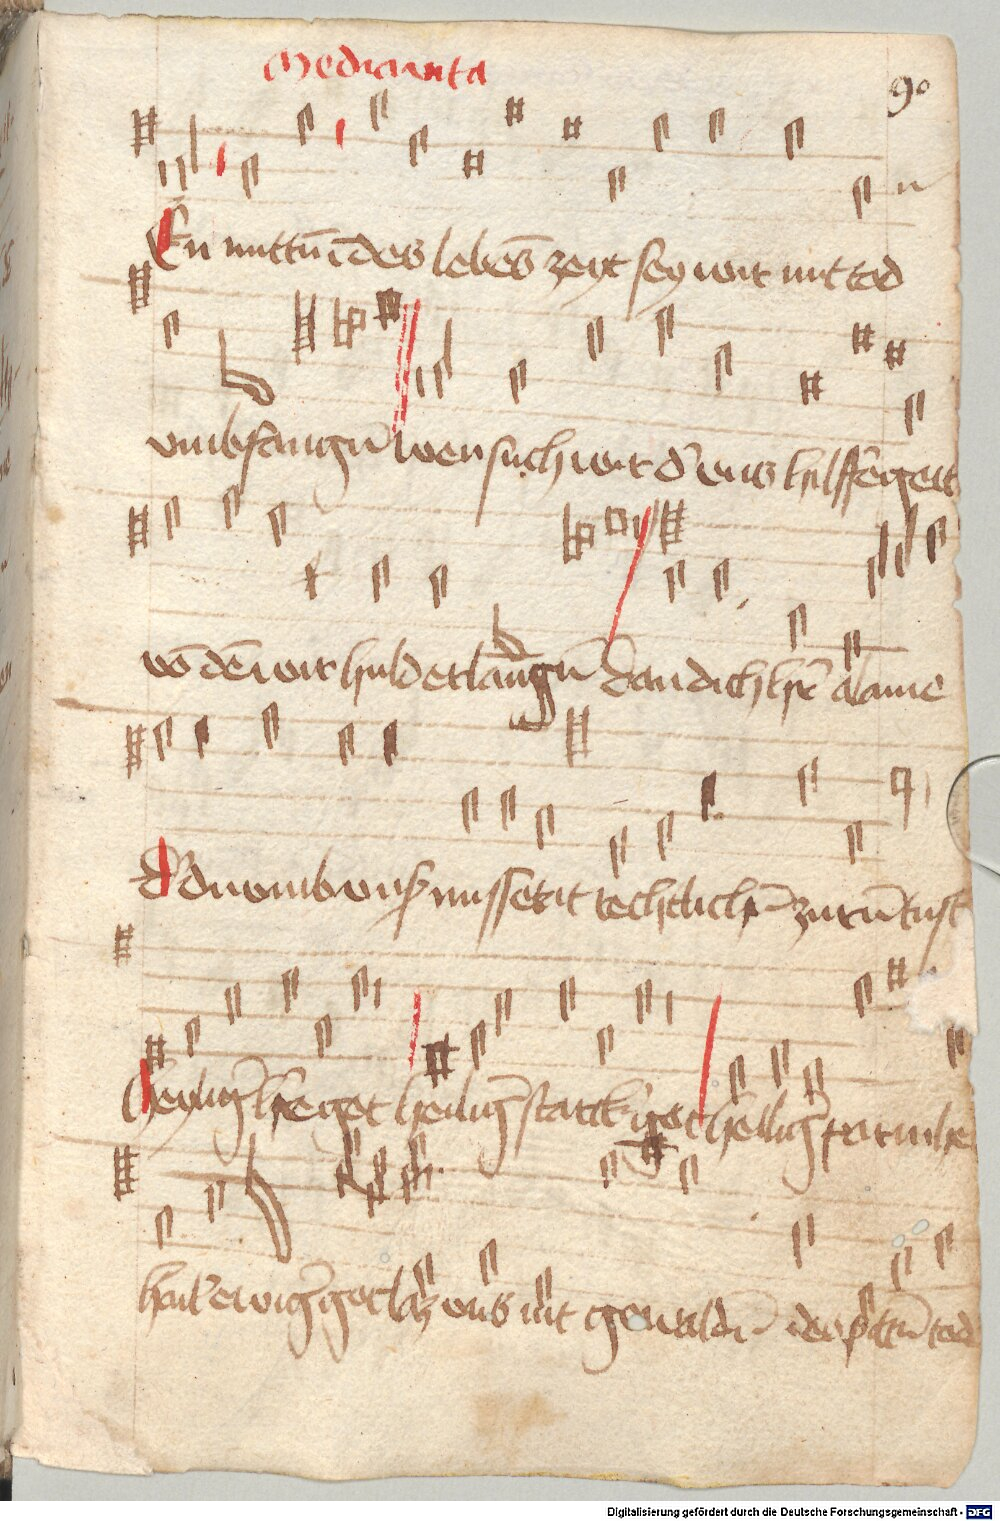 Media vita
90
En mittñ des lebēs zeyt sey wir mit tod
vmbfangñ wen such wir d̕ vns hilffe geit
vō dē wir huld erlangñ dan dich h̕r alaine
d̕ du vmb vnß missetat rechtlichñ zurñ tust
heylig̕ h̕re got heilig̕ starck̕ got heilig̕
hailt̕ ewig̕ got laz vns nit gewaldñ des pittñ tod
Digitalisierung gefördert durch die Deutsche Forschungsgemeinschaft - DFG